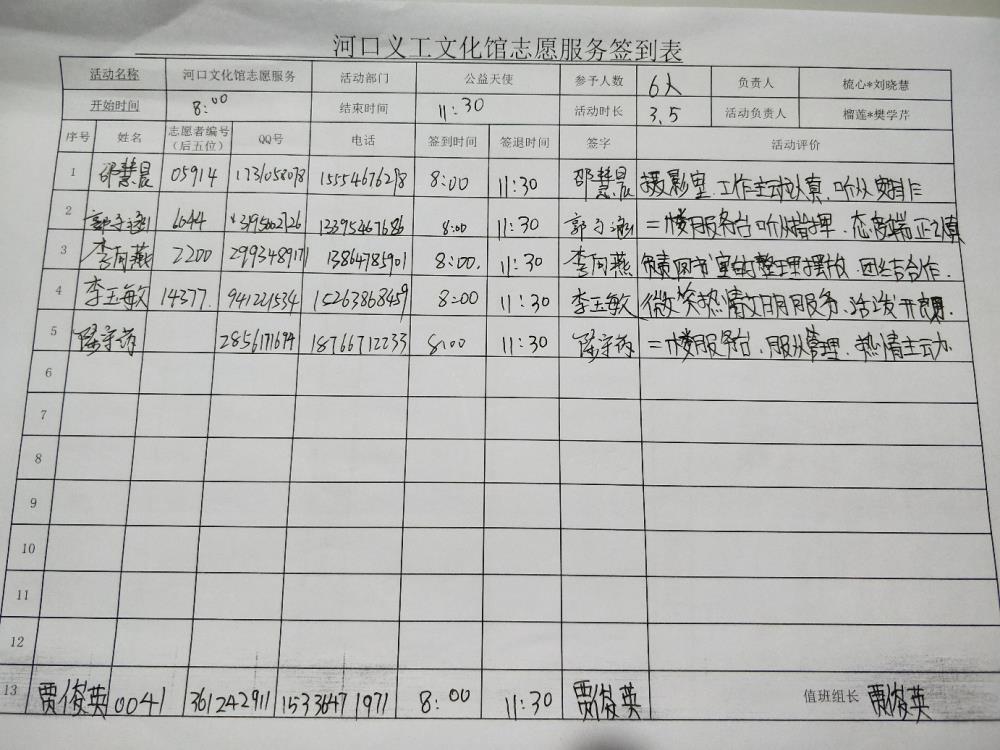 河口义工文化馆志愿服务签到表
活动名称 河口文化馆志愿服务 活动部门 公益天使 参予人数 6人 负责人 梳心*刘晓慧
开始时间 8:00 结束时间 11:30 活动时长 3.5 活动负责人 榴莲*樊学芹
序号 姓名 志愿者编号（后五位） QQ号 电话 签到时间 签退时间 签字 活动评价
1 邵慧晨 05914 1731058078 15554676278 8:00 11:30 邵慧晨 摄影室.工作主动认真.听从安排
2 6044 13395467686 8:00 11:30 二楼服务台听从指挥.态度端正认真
3 李向燕 2200 2993489171 13864785901 8:00. 11:30 李向燕 负责图书室的整理摆放.团结合作.
4 李玉敏 14377. 941221534 15263868459 8:00 11:30 李玉敏 微笑热情文明服务.活泼开朗.
5 2856171694 18766712233 8:00 11:30 二楼服务台.服从管理.热情主动
6
7
8
9
10
11
12
13 贾俊英 0041 361242911 15336471971 8:00 11:30 贾俊英 值班组长 贾俊英